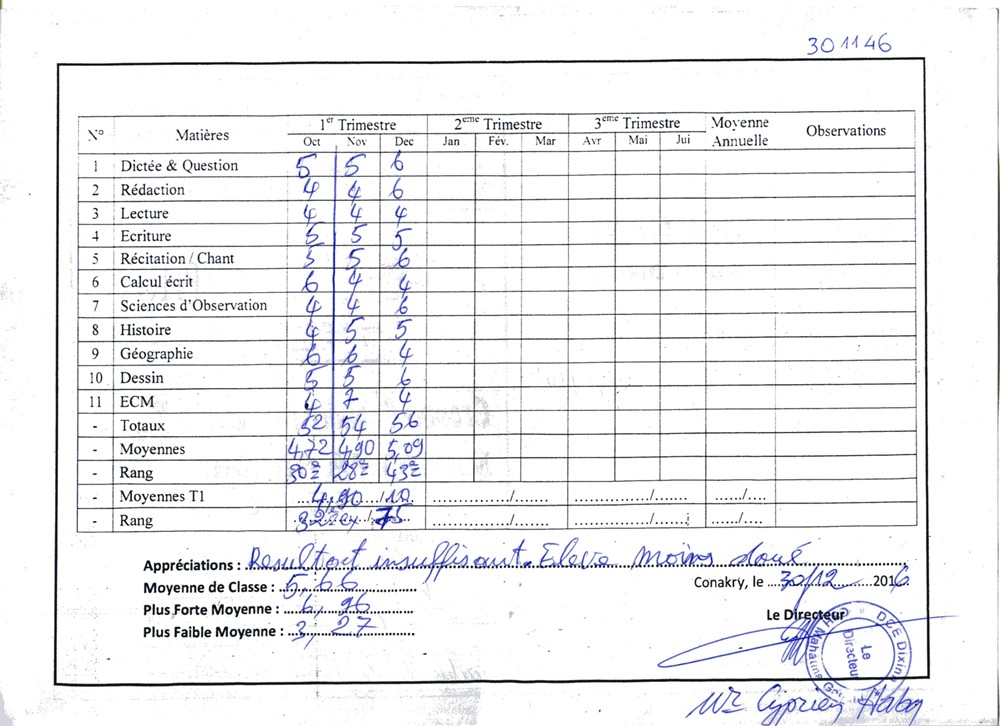 301146
N° Matières 1er Trimestre 2eme Trimestre 3eme Trimestre Moyenne Annuelle Observations
Oct Nov Dec Jan Fév. Mar Avr Mai Jui
1 Dictée & Question 5 5 6
2 Rédaction 4 4 6
3 Lecture 4 4 4
4 Ecriture 5 5 5
5 Récitation / Chant 5 5 6
6 Calcul écrit 6 4 4
7 Sciences d'Observation 4 4 6
8 Histoire 4 5 5
9 Géographie 6 6 4
10 Dessin 5 5 6
11 ECM 4 7 4
- Totaux 52 54 56
- Moyennes 4,72 4,90 5,09
- Rang 30e 28e 43e
- Moyennes T1 4,90 /10 ............../....... ............../....... ....../....
- Rang 32 /75 ............../....... ............../....... ....../....
Appréciations : Resultat insuffisant. Eleve moins doué
Moyenne de Classe : 5,66
Conakry, le 30/12 2016
Plus Forte Moyenne : 6,96
Le Directeur
Plus Faible Moyenne : 3,27
DCE Dixinn
Le Directeur
Mr Cyprien Haby